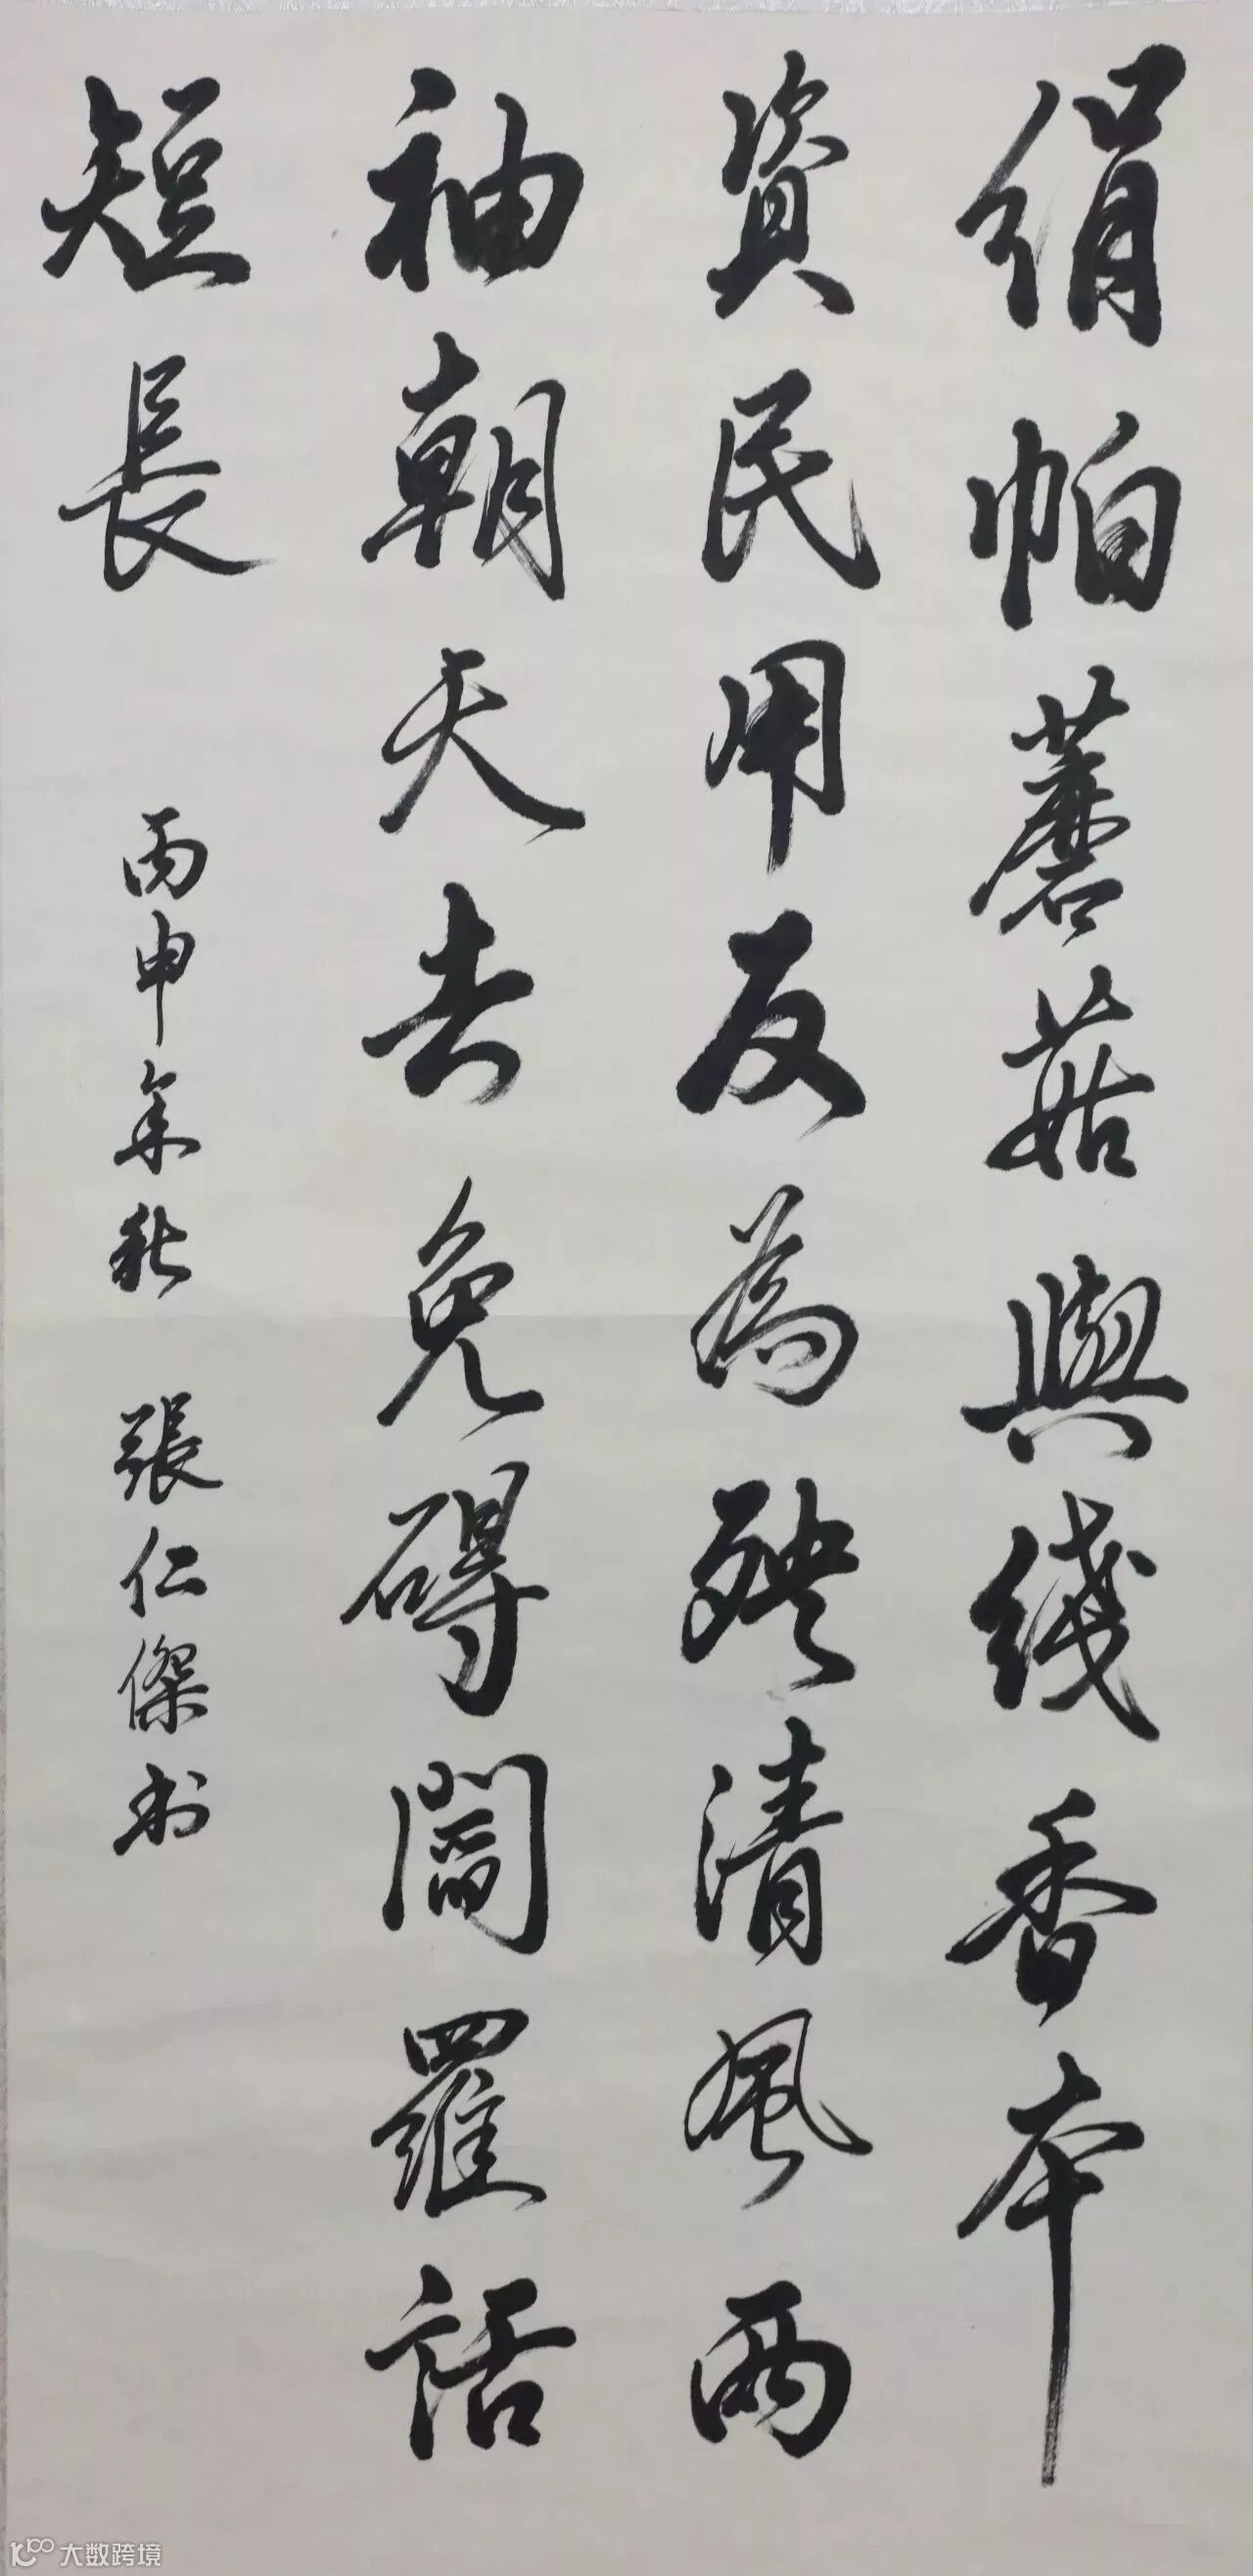 绢帕蘑菇與线香本
資民用反為殃清風两
袖朝天去免碍閻羅話
短長
丙申年秋 張仁傑书
大数跨境